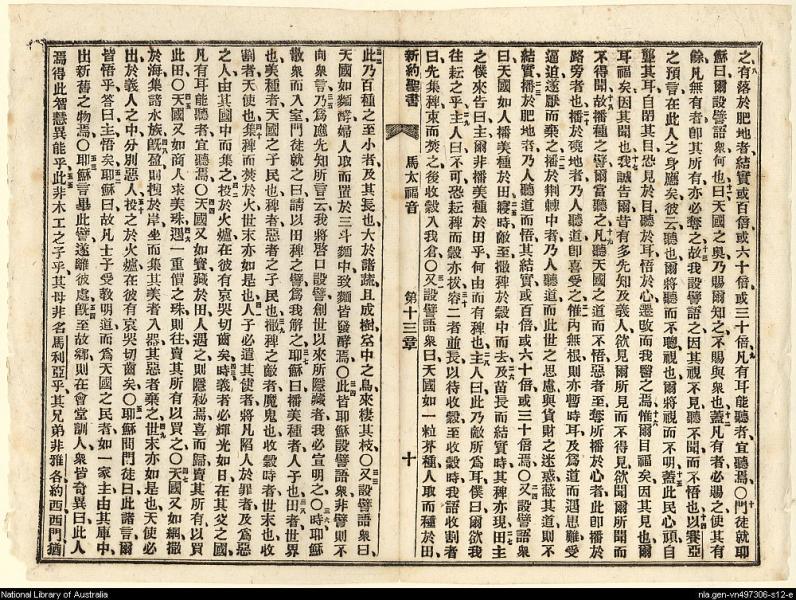 之有落於肥地者結實或百倍或六十倍或三十倍凡有耳能聽者宜聽焉○門徒就耶
穌曰爾設譬語衆何也曰天國之奧乃賜爾知之不賜與衆也蓋凡有者必賜之使其有
餘凡無有者卽其所有亦必奪之故我設譬語之因其視不見聽不聞而不悟也以賽亞
之預言在此人之身應矣彼云聽也爾將聽而不聰視也爾將視而不明蓋此民心頑自
聾其耳自閉其目恐見於目聽於耳悟於心而我醫之焉惟爾目福矣因其見也爾
耳福矣因其聞也我誠告爾昔有多先知及義人欲見爾所見而不得見欲聞爾所聞而
不得聞故播種之譬爾當聽之凡聽天國之道而不悟惡者至奪所播於心者此卽播於
路旁者也播於磽地者乃人聽道卽喜受之惟內無根則亦暫時耳及爲道而遇患難受
逼迫遂厭而棄之播於荊棘中者乃人聽道而此世之思慮與貨財之迷惑蔽其道則不
結實播於肥地者乃人聽道而悟其結實或百倍或六十倍或三十倍焉○又設譬語衆
曰天國如人播美種於田寢時敵至撒稗於穀中而去及苗長而結實時其稗亦現田主
之僕來告曰主爾非播美種於田乎何由而有稗也主人曰此乃敵所爲耳僕曰爾欲我
往耘之乎主人曰不可恐耘稗而穀亦拔容二者並長以待收穀至收穀時我語收割者
曰先集稗束而焚之後收穀入我倉○又設譬語衆曰天國如一粒芥種人取而種於田
新約聖書
馬太福音
第十三章
十
此乃百種之至小者及其長也大於諸蔬且成樹空中之鳥來棲其枝○又設譬語衆曰
天國如麵酵婦人取而置於三斗麵中致麵皆發酵焉○此皆耶穌設譬語衆非譬則不
向衆言乃爲應先知所言云我將啓口設譬創世以來所隱藏者我必宣明之○時耶穌
散衆而入室門徒就之曰請以田稗之譬爲我解之耶穌曰播美種者人子也田者世界
也美種者天國之子民也稗者惡者之子民也撒稗之敵者魔鬼也收穀時者世末也收
割者天使也集稗而焚於火世末亦如是也人子必遣其使者將凡陷人於罪者及爲惡
之人由其國中而集之投於火爐在彼有哀哭切齒矣時義者必輝光如日在其父之國
凡有耳能聽者宜聽焉○天國又如寶藏於田人遇之則隱秘焉喜而歸賣其所有以買
此田○天國又如商人求美珠遇一重價之珠則往賣其所有以買之○天國又如網撒
於海集諸水族旣盈則拽於岸坐而集其美者入器其惡者棄之世末亦如是也天使必
出於義人之中分別惡人投之於火爐在彼有哀哭切齒矣○耶穌問門徒曰此諸言爾
皆悟乎答曰主然耶穌曰故凡士子受教明道而爲天國之民者如一家主由其庫中
出新舊之物焉○耶穌言畢此譬遂離彼處旣至故鄉則在會堂訓人衆皆奇異曰此人
焉得此智慧異能乎此非木工之子乎其母非名馬利亞乎其兄弟非雅各約西西門猶
National Library of Australia
nla.gen-vn497306-s12-e